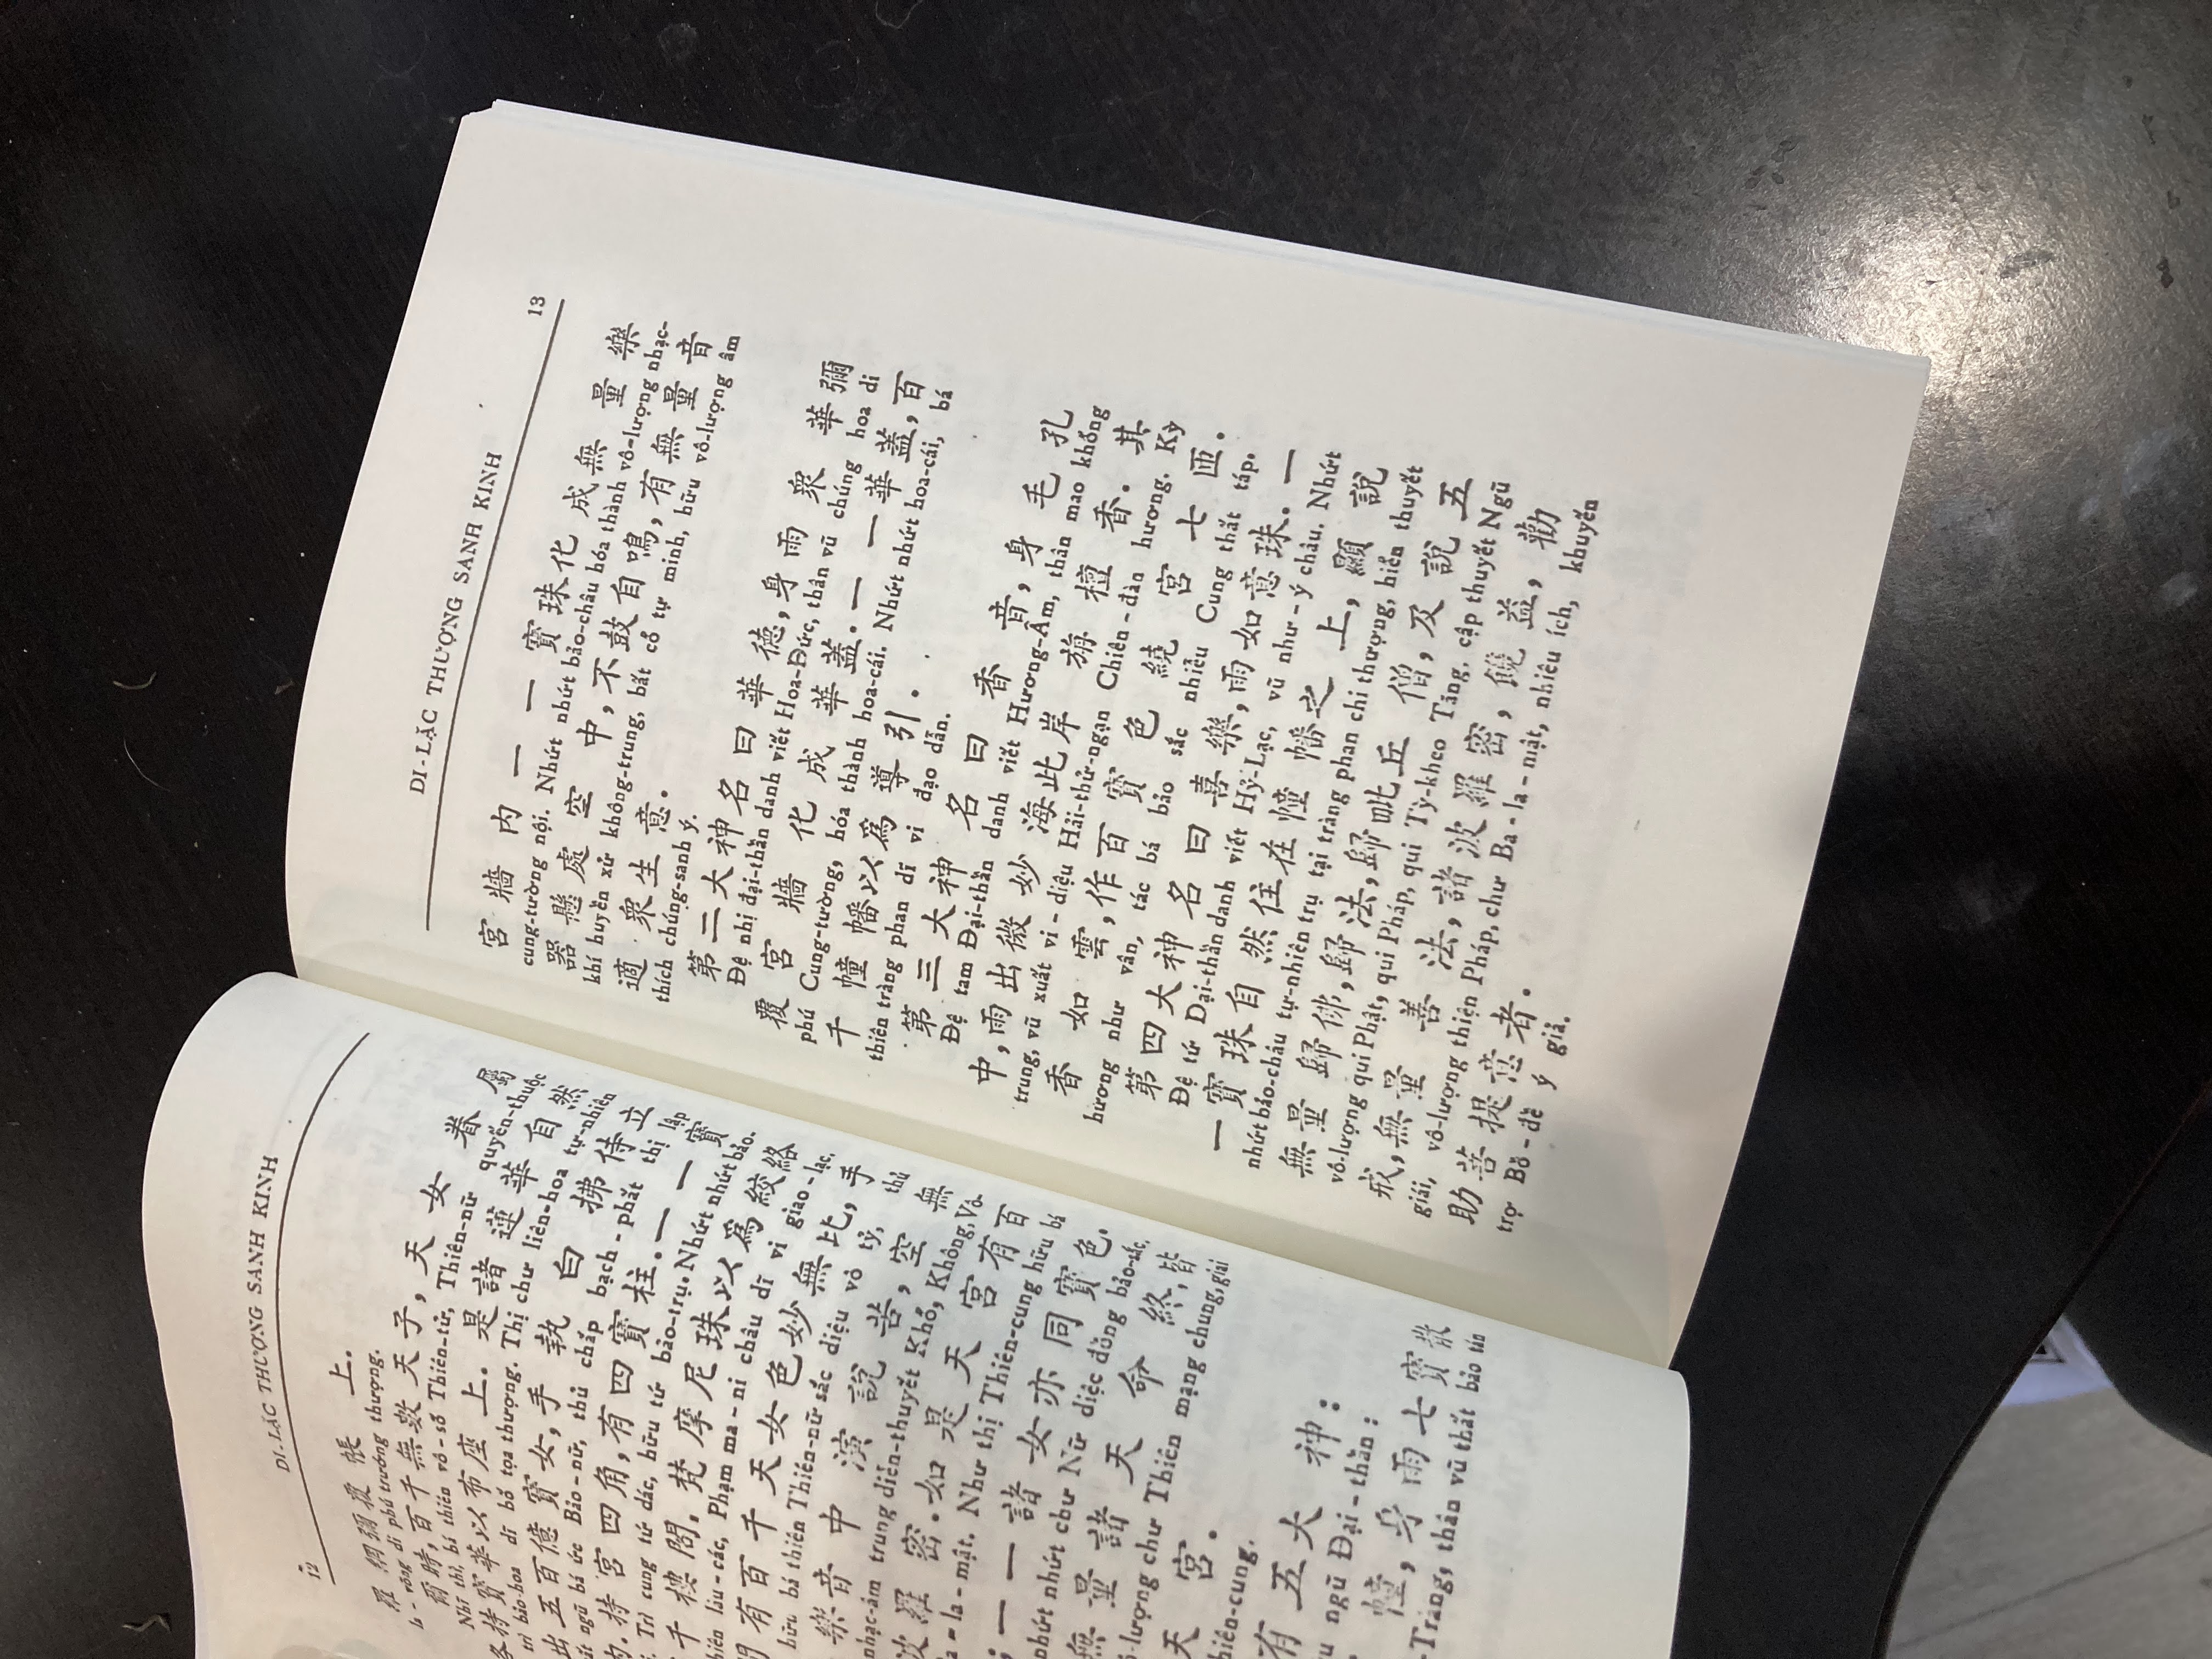 12
DI-LẶC THƯỢNG SANH KINH
羅網彌覆帳上.
la-võng di phú trướng thượng.
爾時,百千無數天子,天女眷屬
Nhĩ thì, bá thiên vô-số Thiên-tử, Thiên-nữ quyến-thuộc
各持寶華以布座上.是諸蓮華自然
trì bảo-hoa dĩ bố tọa thượng. Thị chư liên-hoa tự-nhiên
出五百億寶女,手執白拂侍立
ngũ bá ức Bảo-nữ, thủ chấp bạch-phất thị lập
持宮四角,有四寶柱.一一寶
Trì cung tứ dác, hữu tứ bảo-trụ. Nhứt nhứt bảo-
千樓閣.梵摩尼珠以為絞絡
lâu-các, Phạm ma-ni châu dĩ vi giao-lạc.
有百千天女色妙無比,手
hữu bá thiên Thiên-nữ sắc diệu vô tỷ, thủ
樂音中演說苦,空無
nhạc-âm trung diễn-thuyết Khổ, Không, Vô-
波羅密.如是天宮有百
la-mật. Như thị Thiên-cung hữu bá
一一諸女亦同寶色.
nhứt nhứt chư Nữ diệc đồng bảo-sắc.
無量諸天命終,皆
lượng chư Thiên mạng chung, giai
天宮.
Thiên-cung.
有五大神:
ngũ Đại-thần:
幢,身雨七寶散
Tràng, thân vũ thất bảo tán
DI-LẶC THƯỢNG SANH KINH
13
宮牆內一一寶珠化成無量樂
cung-tường nội. Nhứt nhứt bảo-châu hóa thành vô-lượng nhạc-
器懸處空中,不鼓自鳴,有無量音
khí huyền xử không-trung, bất cổ tự minh, hữu vô-lượng âm
適眾生意.
thích chúng-sanh ý.
第二大神名曰華德,身雨眾華彌
Đệ nhị đại-thần danh viết Hoa-Đức, thân vũ chúng hoa di
覆宮牆化成華蓋.一一華蓋,百
phú Cung-tường, hóa thành hoa-cái. Nhứt nhứt hoa-cái, bá
千幢幡以為導引.
thiên tràng phan dĩ vi đạo dẫn.
第三大神名曰香音,身毛孔
Đệ tam Đại-thần danh viết Hương-Âm, thân mao khổng
中,雨出微妙海此岸旃檀香.其
trung, vũ xuất vi-diệu Hải-thử-ngạn Chiên-đàn hương. Kỳ
香如雲,作百寶色繞宮七匝.
hương như vân, tác bá bảo sắc nhiễu Cung thất táp.
第四大神名曰喜樂,雨如意珠.一
Đệ tứ Đại-thần danh viết Hỷ-Lạc, vũ như-ý châu. Nhứt
一寶珠自然住在幢幡之上,顯說
nhứt bảo-châu tự-nhiên trụ tại tràng phan chi thượng, hiển thuyết
無量歸佛,歸法,歸毗丘僧,及說五
vô-lượng qui Phật, qui Pháp, qui Tỳ-kheo Tăng, cập thuyết Ngũ
戒,無量善法,諸波羅密,饒益,勸
giái, vô-lượng thiện Pháp, chư Ba-la-mật, nhiêu ích, khuyến
助菩提意者.
trợ Bồ-đề ý giả.